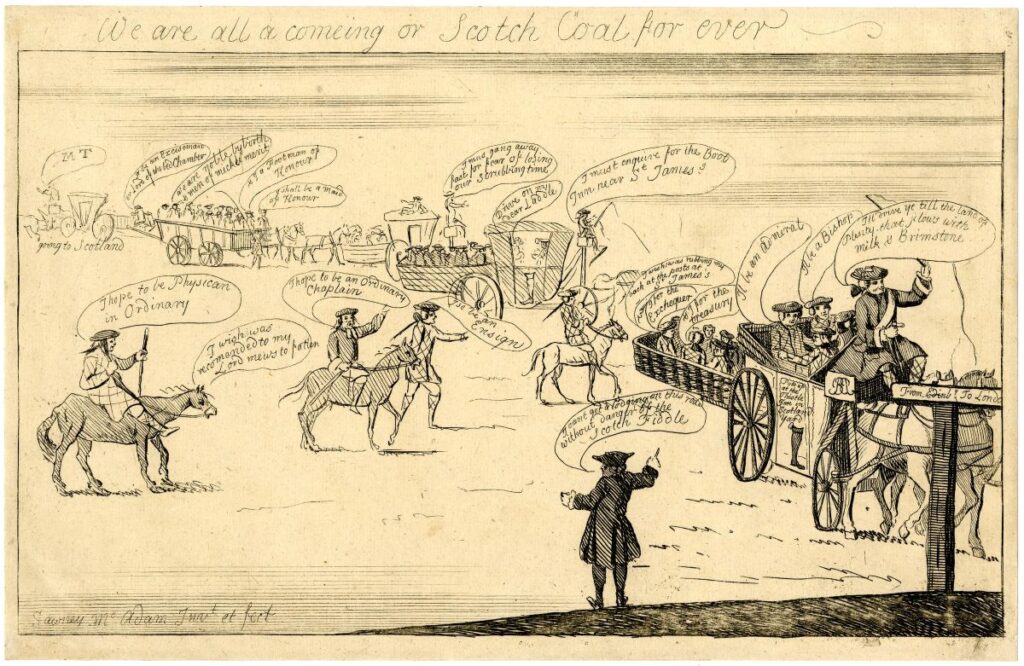 We are all a comeing or Scotch Coal for ever
M T
going to Scotland
be an Exciseman
or Lord of the Bed Chamber
we are noble by birth
and men of mickle merit
a Footman of
Honour
I shall be a Maid
of Honour
I mus gang away
fast for fear of losing
our Scrubbing time
Drive on my
dear Laddle
I must enquire for the Boot
Inn near St James's
I hope to be Physican
in Ordinary
I wish was
recomended to my
Lord mews to patien
I hope to be an Ordinary
Chaplain
be an
Ensign
I wish was rubbing my
back at the posts at
St James's
for the
Exchequer
for the
treasury
Ile be an Admiral
Ile be a Bishop
Ill drive ye till the land of
plenty that flows with
milk & Brimstone
I cant get a lodging on this road
without danger of the
Scotch Fiddle
From Edinb. To London
Sawney Mc Adam Invt et fect